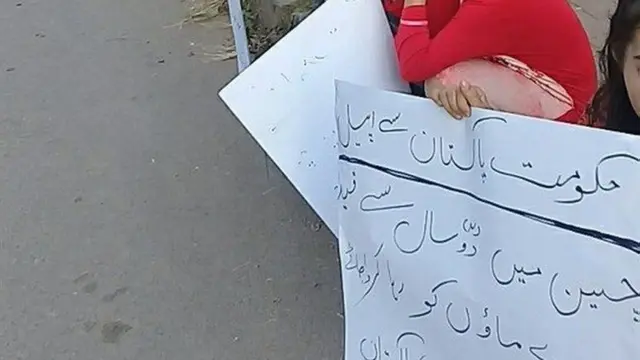 حکومت پاکستان سے اپیل
چین میں دو سال سے قید
ماؤں کو رہا کروایا جائے
پاکستان